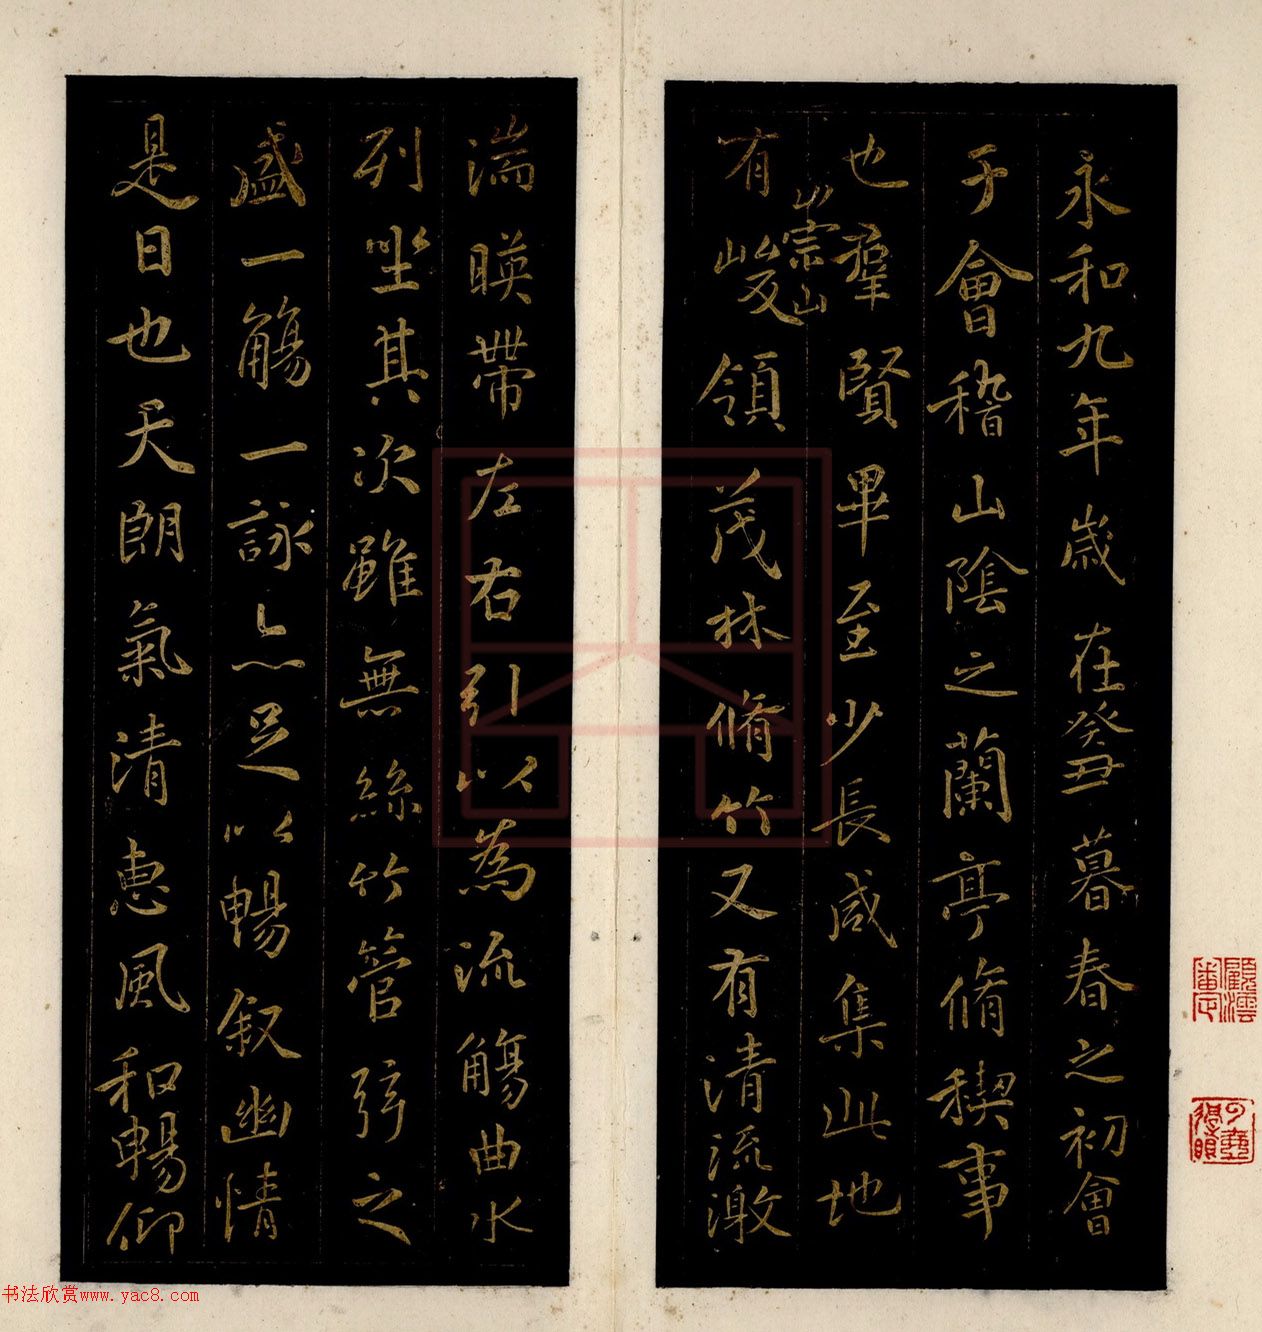 永和九年歲在癸丑暮春之初會
于會稽山陰之蘭亭脩稧事
也羣賢畢至少長咸集此地
崇山
有峻領茂林脩竹又有清流激
湍暎帶左右引以為流觴曲水
列坐其次雖無絲竹管弦之
盛一觴一詠亦足以暢叙幽情
是日也天朗氣清惠風和暢仰
书法欣赏www.yac8.com